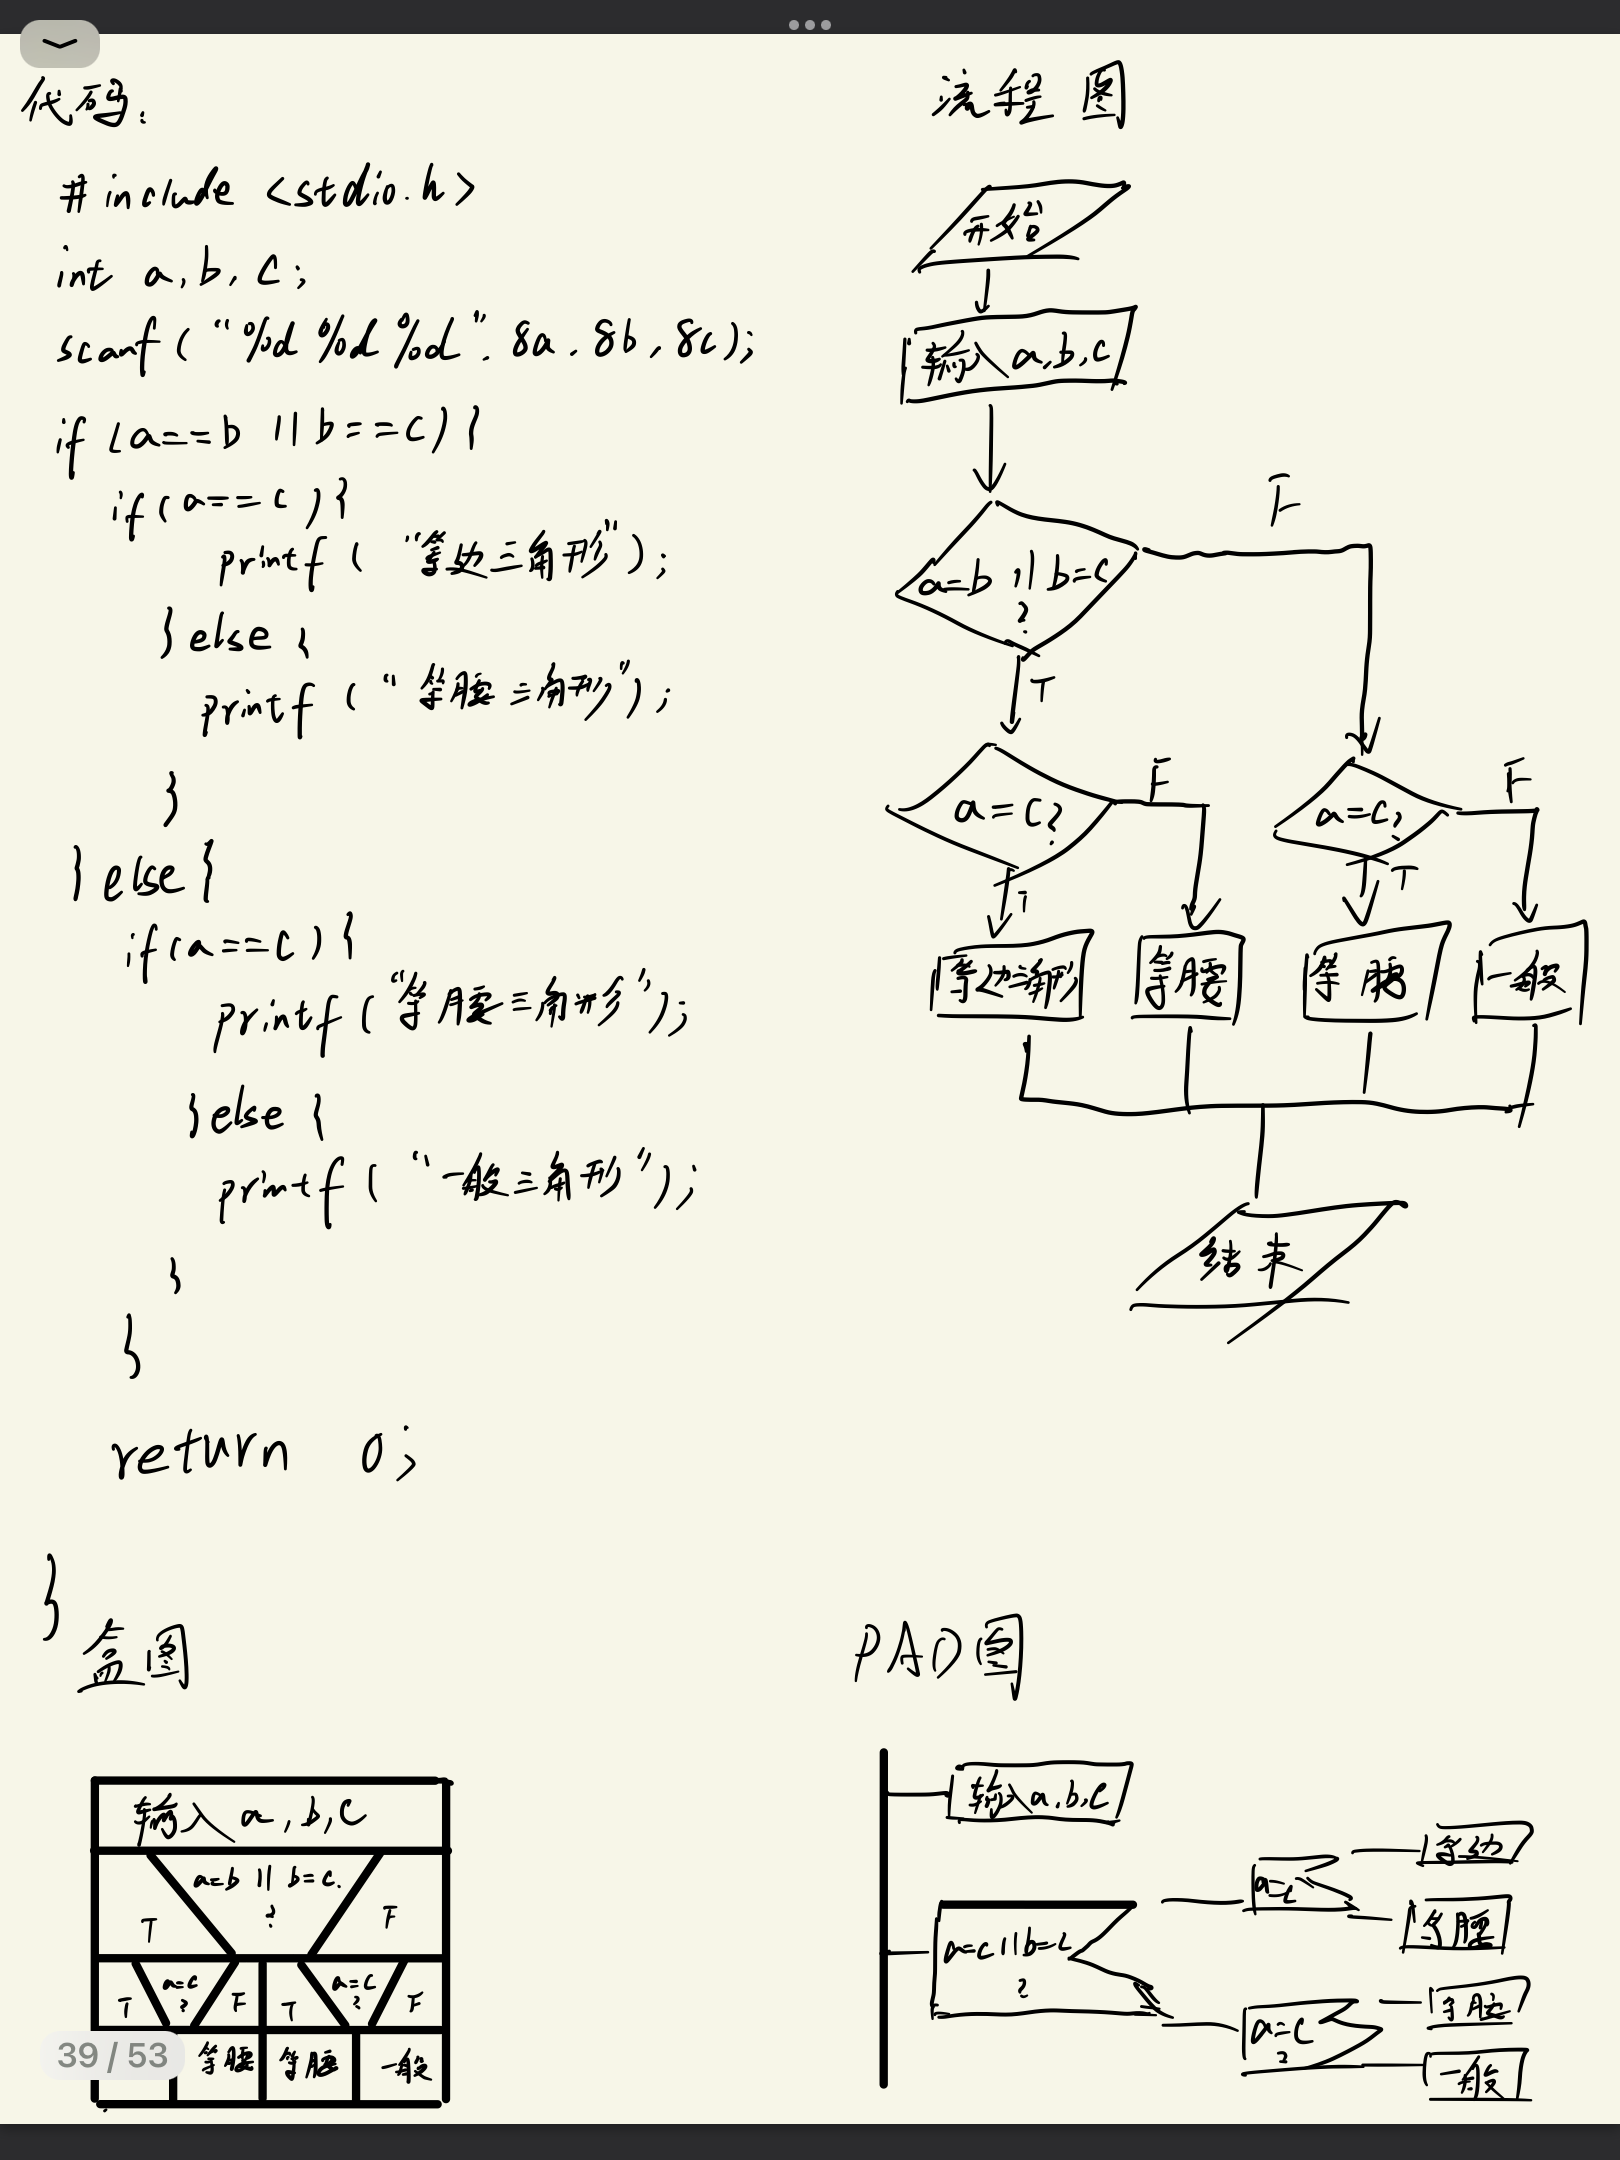 代码:
# include <stdio.h>
int a, b, c;
scanf ( "%d %d %d". &a. &b, &c);
if (a==b || b==c) {
if (a==c) {
printf ( "等边三角形");
} else {
printf ( "等腰三角形");
}
} else {
if (a==c) {
printf ( "等腰三角形");
} else {
printf ( "一般三角形");
}
}
return 0;
}
流程图
开始
输入 a, b, c
a=b || b=c
?
F
T
a=c?
F
T
a=c?
F
T
等边三角形
等腰
等腰
一般
结束
盒图
输入 a, b, c
a=b || b=c.
?
T
F
a=c
?
T
F
a=c
?
T
F
等腰
等腰
一般
39 / 53
PAD图
输入 a. b, c
a=c || b=c
?
a=c
等边
等腰
a=c
?
等腰
一般